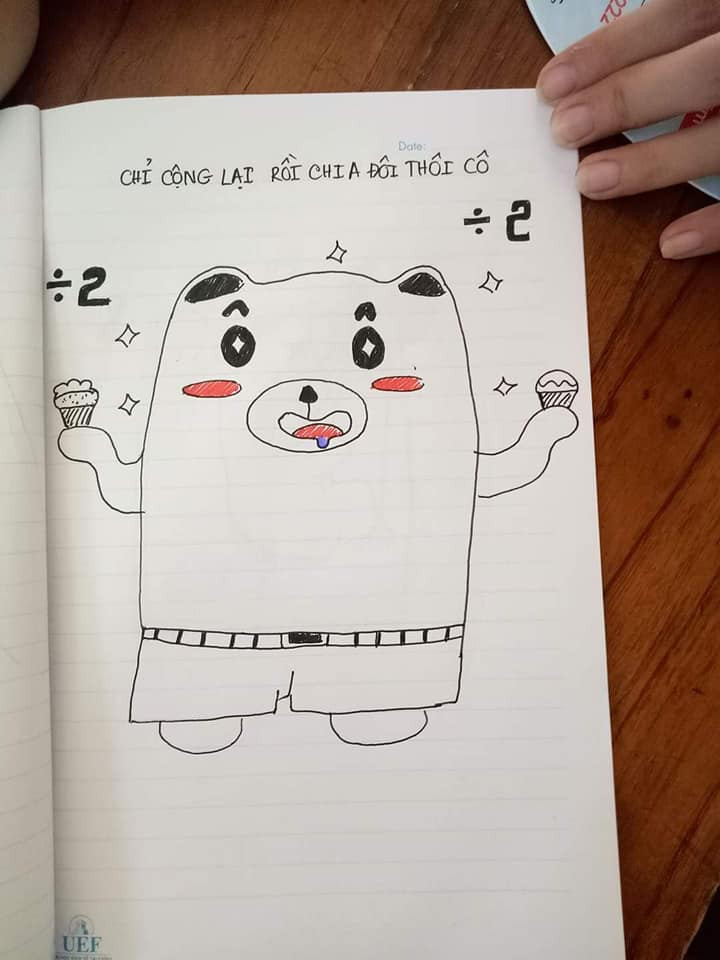 Date:
CHỈ CỘNG LẠI RỒI CHIA ĐÔI THÔI CÔ
÷ 2
÷2
UEF